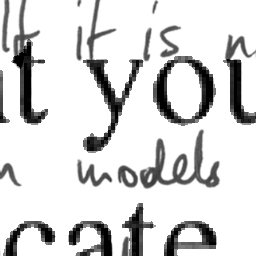 If it is
t you
models
cate